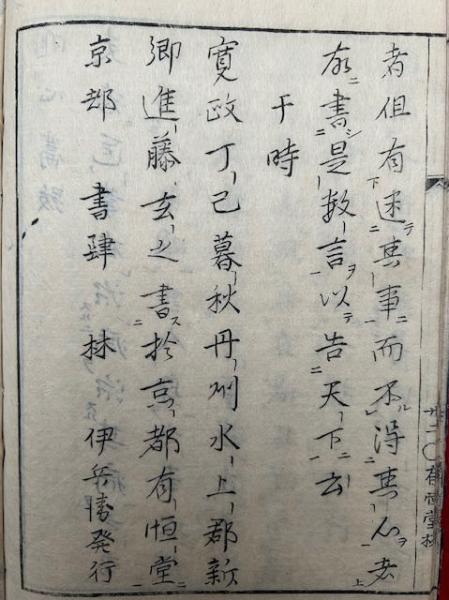 者但有迷其事而不得其心者
故書是数言以告天下云
于時
寛政丁巳暮秋丹州水上郡新
郷進藤玄之書於京都有恒堂
京都書肆林伊兵衛発行